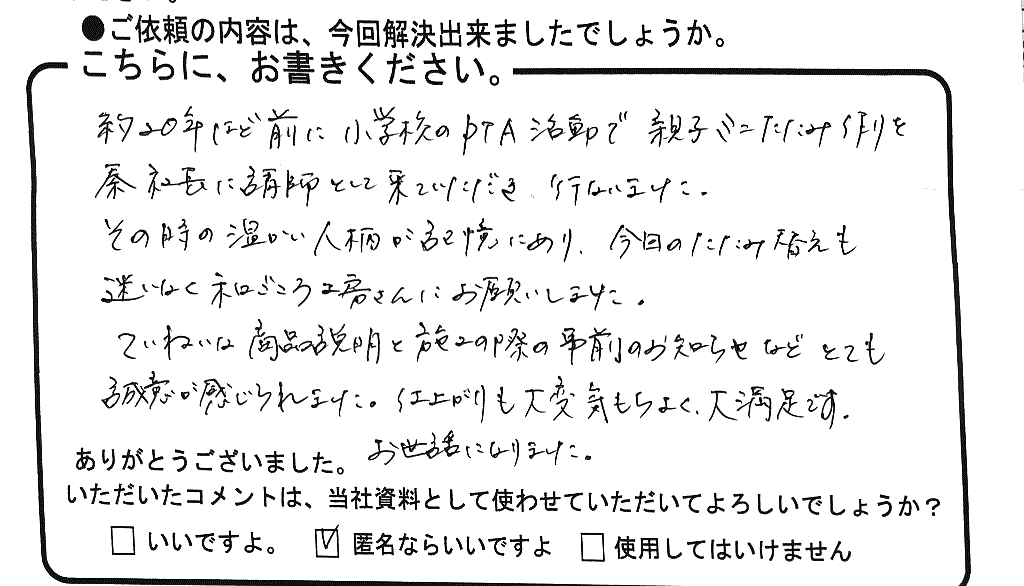 ●ご依頼の内容は、今回解決出来ましたでしょうか。
こちらに、お書きください。
約20年ほど前に小学校のPTA活動で親子ミニたたみ作りを
秦社長に講師として来ていただき、行ないました。
その時の温かい人柄が記憶にあり、今回のたたみ替えも
迷いなく和ごころ工房さんにお願いしました。
ていねいな商品説明と施工の際の事前のお知らせなどとても
誠意が感じられました。仕上がりも大変気もちよく、大満足です。
お世話になりました。
ありがとうございました。
いただいたコメントは、当社資料として使わせていただいてよろしいでしょうか?
□ いいですよ。 ☑ 匿名ならいいですよ □ 使用してはいけません